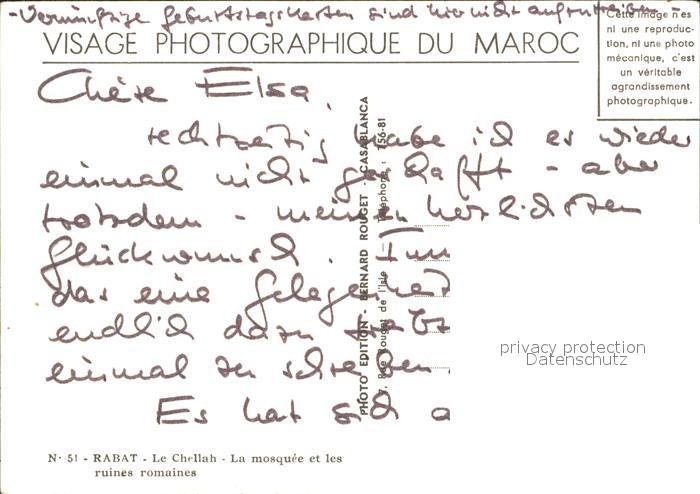 - Vernünftige Geburtstagskarten sind hier nicht aufzutreiben -
VISAGE PHOTOGRAPHIQUE DU MAROC
Cette image n'es
ni une reproduc-
tion, ni une photo
mécanique, c'est
un véritable
agrandissement
photographique.
Chère Elsa,
rechtzeitig habe ich es wieder
einmal nicht geschafft - aber
trotzdem - meinen herzlichsten
Glückwunsch.
das eine Gelegenheit
endlich dazu
einmal zu schreiben.
Es hat sich a
PHOTO EDITION - BERNARD ROUGET - CASABLANCA
7, Rue Rouget de l'Isle - Téléphone : 756-81
privacy protection
Datenschutz
N· 51 - RABAT - Le Chellah - La mosquée et les
ruines romaines